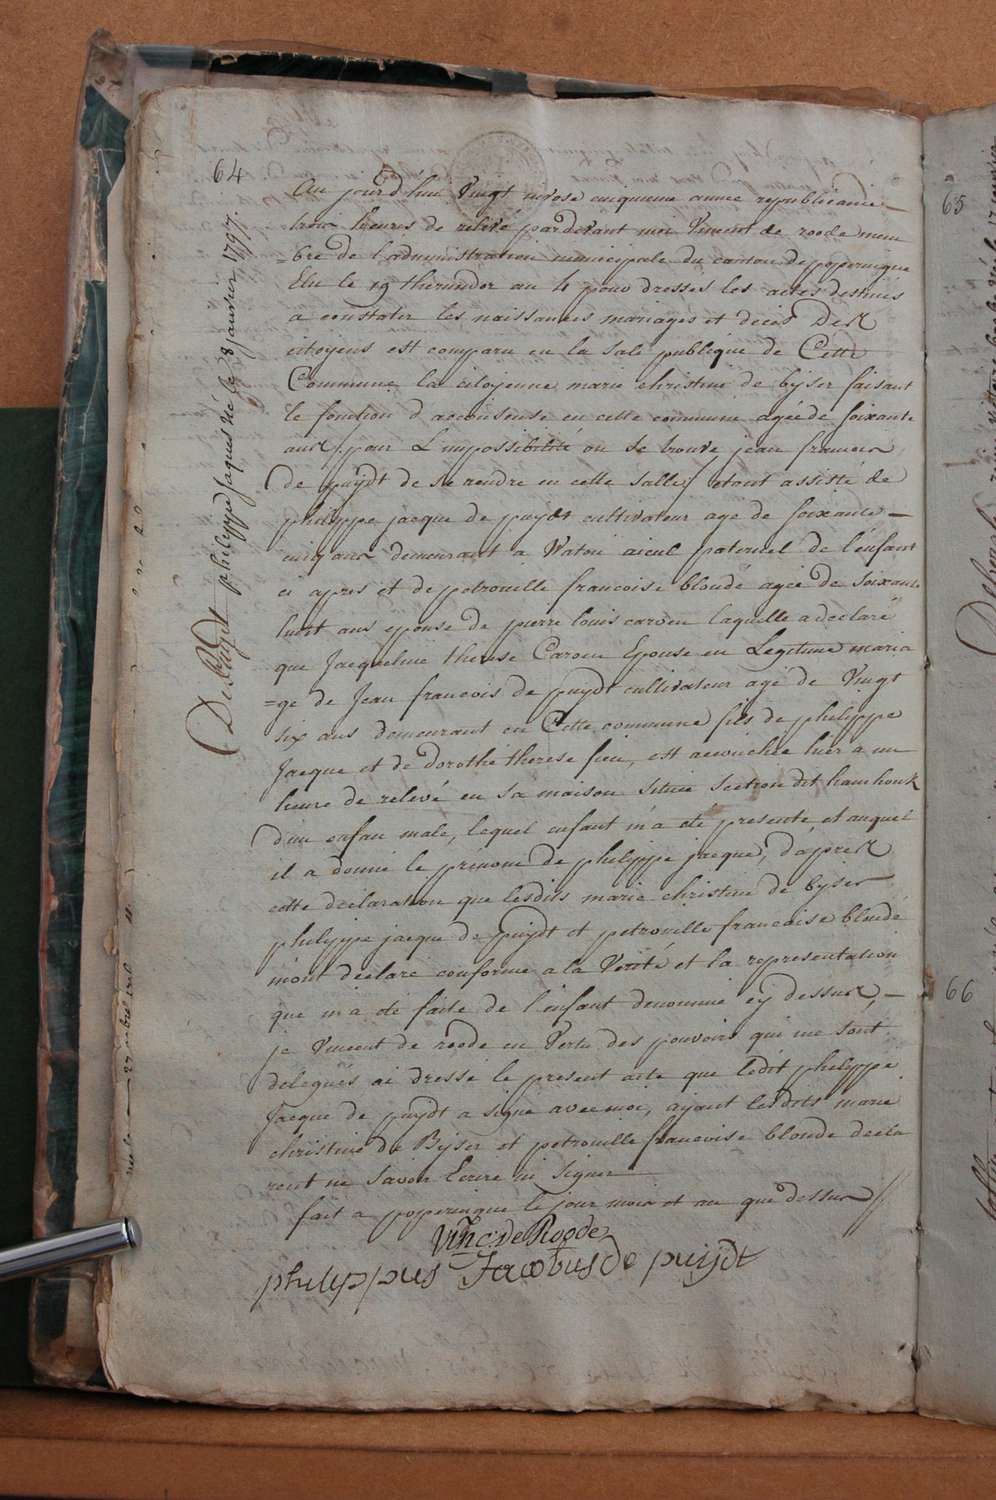 64
De Puijdt philippe Jaques né le 8 janvier 1797.
Au jourd'hui Vingt nivose cinquieme année republicaine
trois heures de relevé pardevant moi Vincent de roode mem
=bre de l'administration municipale du canton de poperingue
Elu le 19 thermidor an 4 pour dresser les actes destinés
a constater les naissances mariages et deces Des
citoyens est comparu en la sale publique de Cette
Commune la citoyenne marie christine de byser faisant
le fonction d accouseuse en cette commune agée de soixante
ans pour L'impossibilité ou se trouve jean francois
de puydt de se rendre en cette salle etant assisté de
philippe jacque de puydt cultivateur agé de soixante
cinq ans demeurant a Watou aieul paternel de l'enfant
ci apres et de petronille francoise blondé agée de soixante
huit ans epouse de pierre louis caroen laquelle a declaré
que Jacqueline therese Caroen Epouse en Legitime maria
=ge de Jean francois de puydt cultivateur agé de Vingt
six ans demeurant en Cette commune fils de philippe
Jacque et de dorothé therese est accouchée hier a un
heure de relevé en sa maison située section dit hamhouk
d'un enfan male, lequel enfant m'a eté presenté, et auquel
il a donné le prenome de philippe jacque, d'apres
cette declaration que lesdits marie christine de byser
philippe jacque de puydt et petronille francoise blondé
m'ont declaré conforme a la Verité et la representation
que m'a eté faite de l'enfant denommé cy dessus,
je Vincent de roode en Vertu des pouvoirs qui me sont
delegués ai dressé le present acte que ledit philippe
Jacque de puydt a signé avec moi, ayant lesdits marie
christine de Byser et petronille francoise blonde decla
rent ne savoir Ecrire ni signer
fait a poperingue le jour mois et an que dessus
Vinc: de Roode
philippus Jacobus de puijdt
65
66